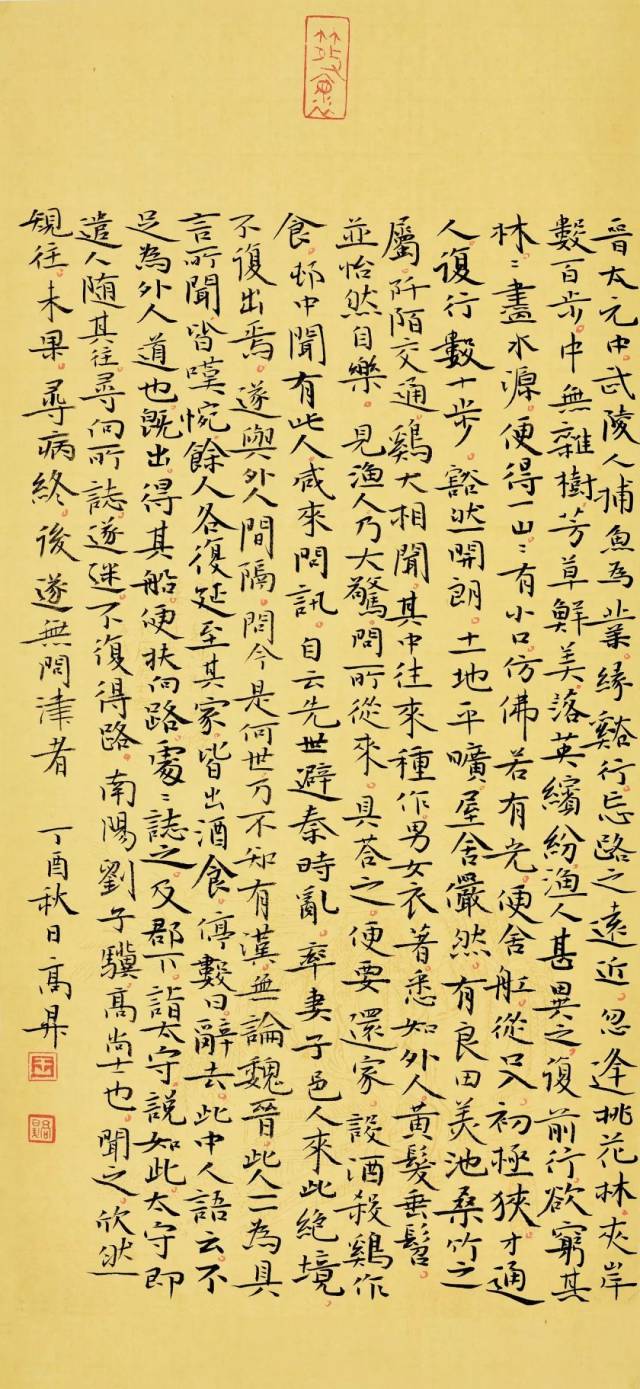 晉太元中。武陵人捕魚為業。緣谿行。忘路之遠近。忽逢桃花林。夾岸
數百步。中無雜樹。芳草鮮美。落英繽紛。漁人甚異之。復前行。欲窮其
林。〻盡水源。便得一山。〻有小口。仿佛若有光。便舍舡從口入。初極狹。才通
人。復行數十步。豁然開朗。土地平曠。屋舍儼然。有良田美池桑竹之
屬。阡陌交通。鷄犬相聞。其中往來種作。男女衣著。悉如外人。黃髮垂髫。
並怡然自樂。見漁人乃大驚。問所從來。具荅之。便要還家。設酒殺鷄作
食。邨中聞有此人。咸來問訊。自云先世避秦時亂。率妻子邑人來此絕境。
不復出焉。遂與外人間隔。問今是何世。乃不知有漢。無論魏晉。此人一一為具
言所聞。皆嘆惋。餘人各復延至其家。皆出酒食。停數日。辭去。此中人語云。不
足為外人道也。既出。得其船。便扶向路。處〻誌之。及郡下。詣太守。說如此。太守即
遣人隨其往。尋向所誌。遂迷。不復得路。南陽劉子驥。高尚士也。聞之。欣然
規往。未果。尋病終。後遂無問津者 丁酉秋日高昇